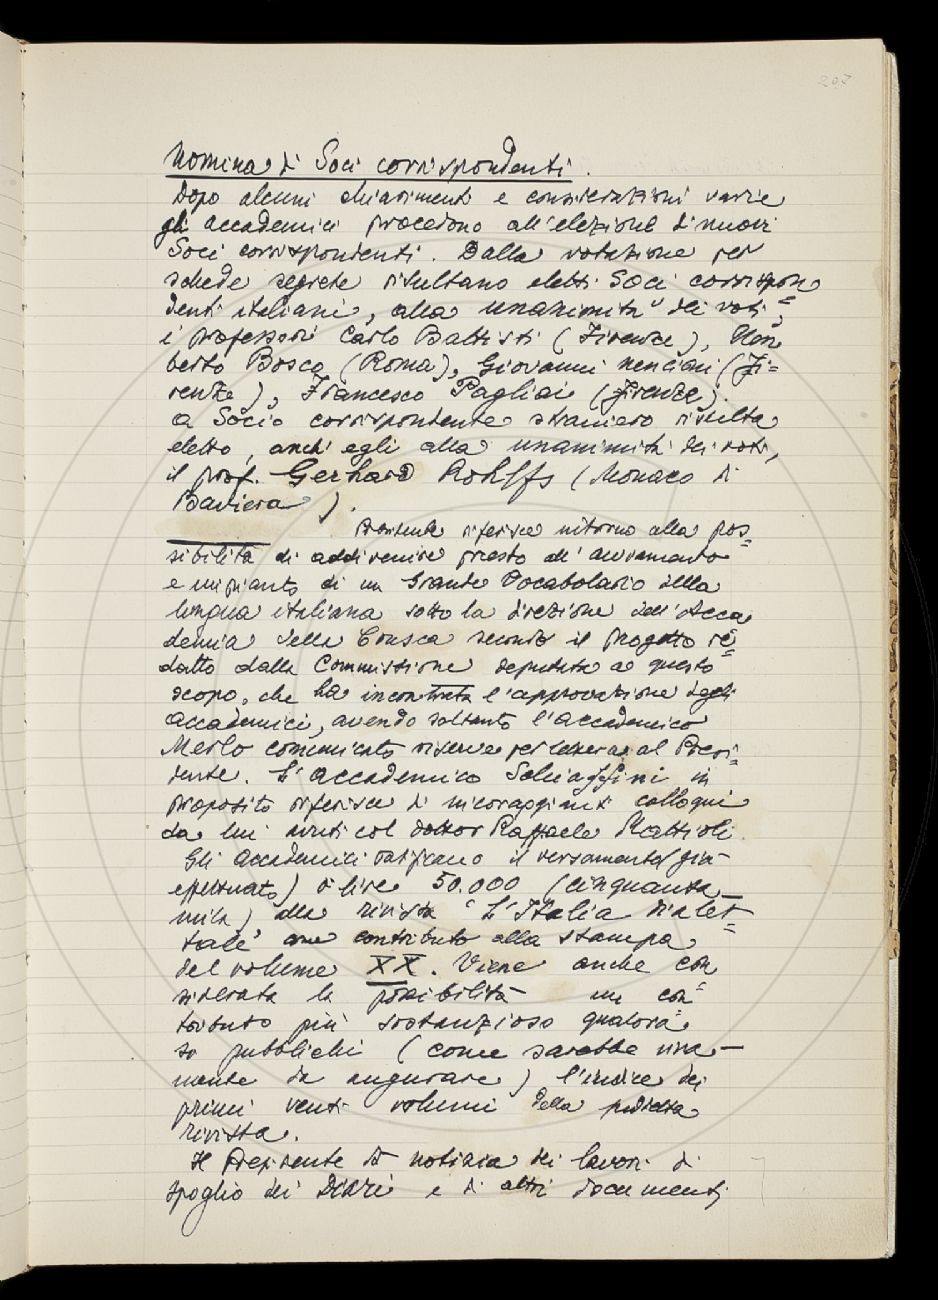 207
Nomina di Soci corrispondenti.
Dopo alcuni chiarimenti e considerazioni varie
gli accademici procedono all'elezione di nuovi
Soci corrispondenti. Dalla votazione per
schede segrete risultano eletti Soci corrispon=
denti italiani, alla unanimità dei voti,
i professori Carlo Battisti (Firenze), Um
berto Bosco (Roma), Giovanni Nencioni (Fi=
renze), Francesco Pagliai (Firenze).
A Socio corrispondente straniero risulta
eletto, anch'egli alla unanimità dei voti,
il prof. Gerhard Rohlffs (Monaco di
Baviera).
riferisce intorno alla pos=
sibilità di addivenire presto all'avviamento
e impianto di un Grande Vocabolario della
lingua italiana sotto la direzione dell'Acca
demia della Crusca secondo il progetto re=
datto dalla Commissione deputata a questo
scopo, che ha incontrato l'approvazione degli
accademici, avendo soltanto l'accademico
Merlo comunicato riserve per lettera al Presi=
dente. L'accademico Schiaffini in
proposito riferisce di incoraggianti colloqui
da lui avuti col dottor Raffaele Mattioli.
Gli accademici ratificano il versamento (già
effettuato) di lire 50.000 (cinquanta
mila) alla rivista "L'Italia dialet=
tale" come contributo alla stampa
del volume XX. Viene anche con
siderata la possibilità un con=
tributo più sostanzioso qualora
si pubblichi (come sarebbe viva=
mente da augurare) l'indice dei
primi venti volumi della predetta
rivista.
Il Presidente dà notizia dei lavori di
spoglio dei Diari e di altri documenti